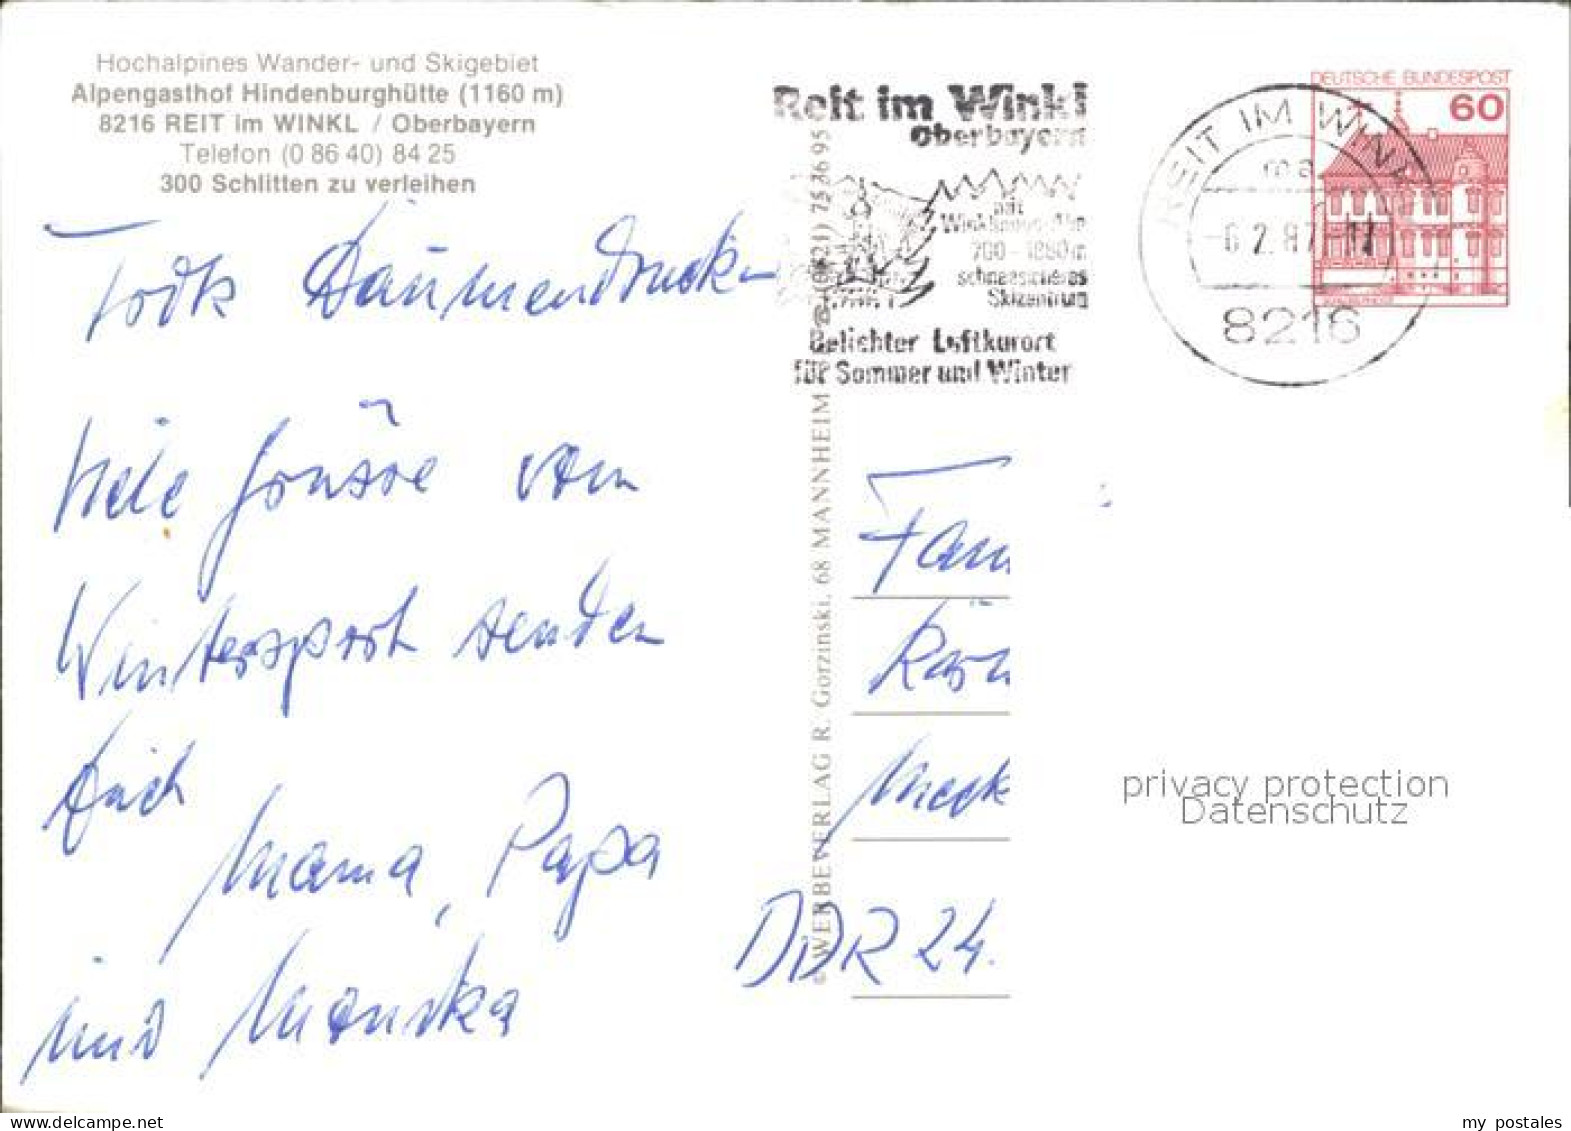 Hochalpines Wander- und Skigebiet
Alpengasthof Hindenburghütte (1160 m)
8216 REIT im WINKL / Oberbayern
Telefon (0 86 40) 84 25
300 Schlitten zu verleihen
Reit im Winkl
Oberbayern
mit
Winklmoos-Alm
700 - 1860 m
schneesicheres
Skizentrum
Beliebter Luftkurort
für Sommer und Winter
REIT IM WINKL
ma
-6.2.87-17
8216
DEUTSCHE BUNDESPOST
60
Daumendrücken
Viele Grüsse vom
Wintersport senden
Euch
Mama, Papa
und Monika
© WERBEVERLAG R. Gorzinski, 68 MANNHEIM
Fam
DDR 24.
privacy protection
Datenschutz
my postales